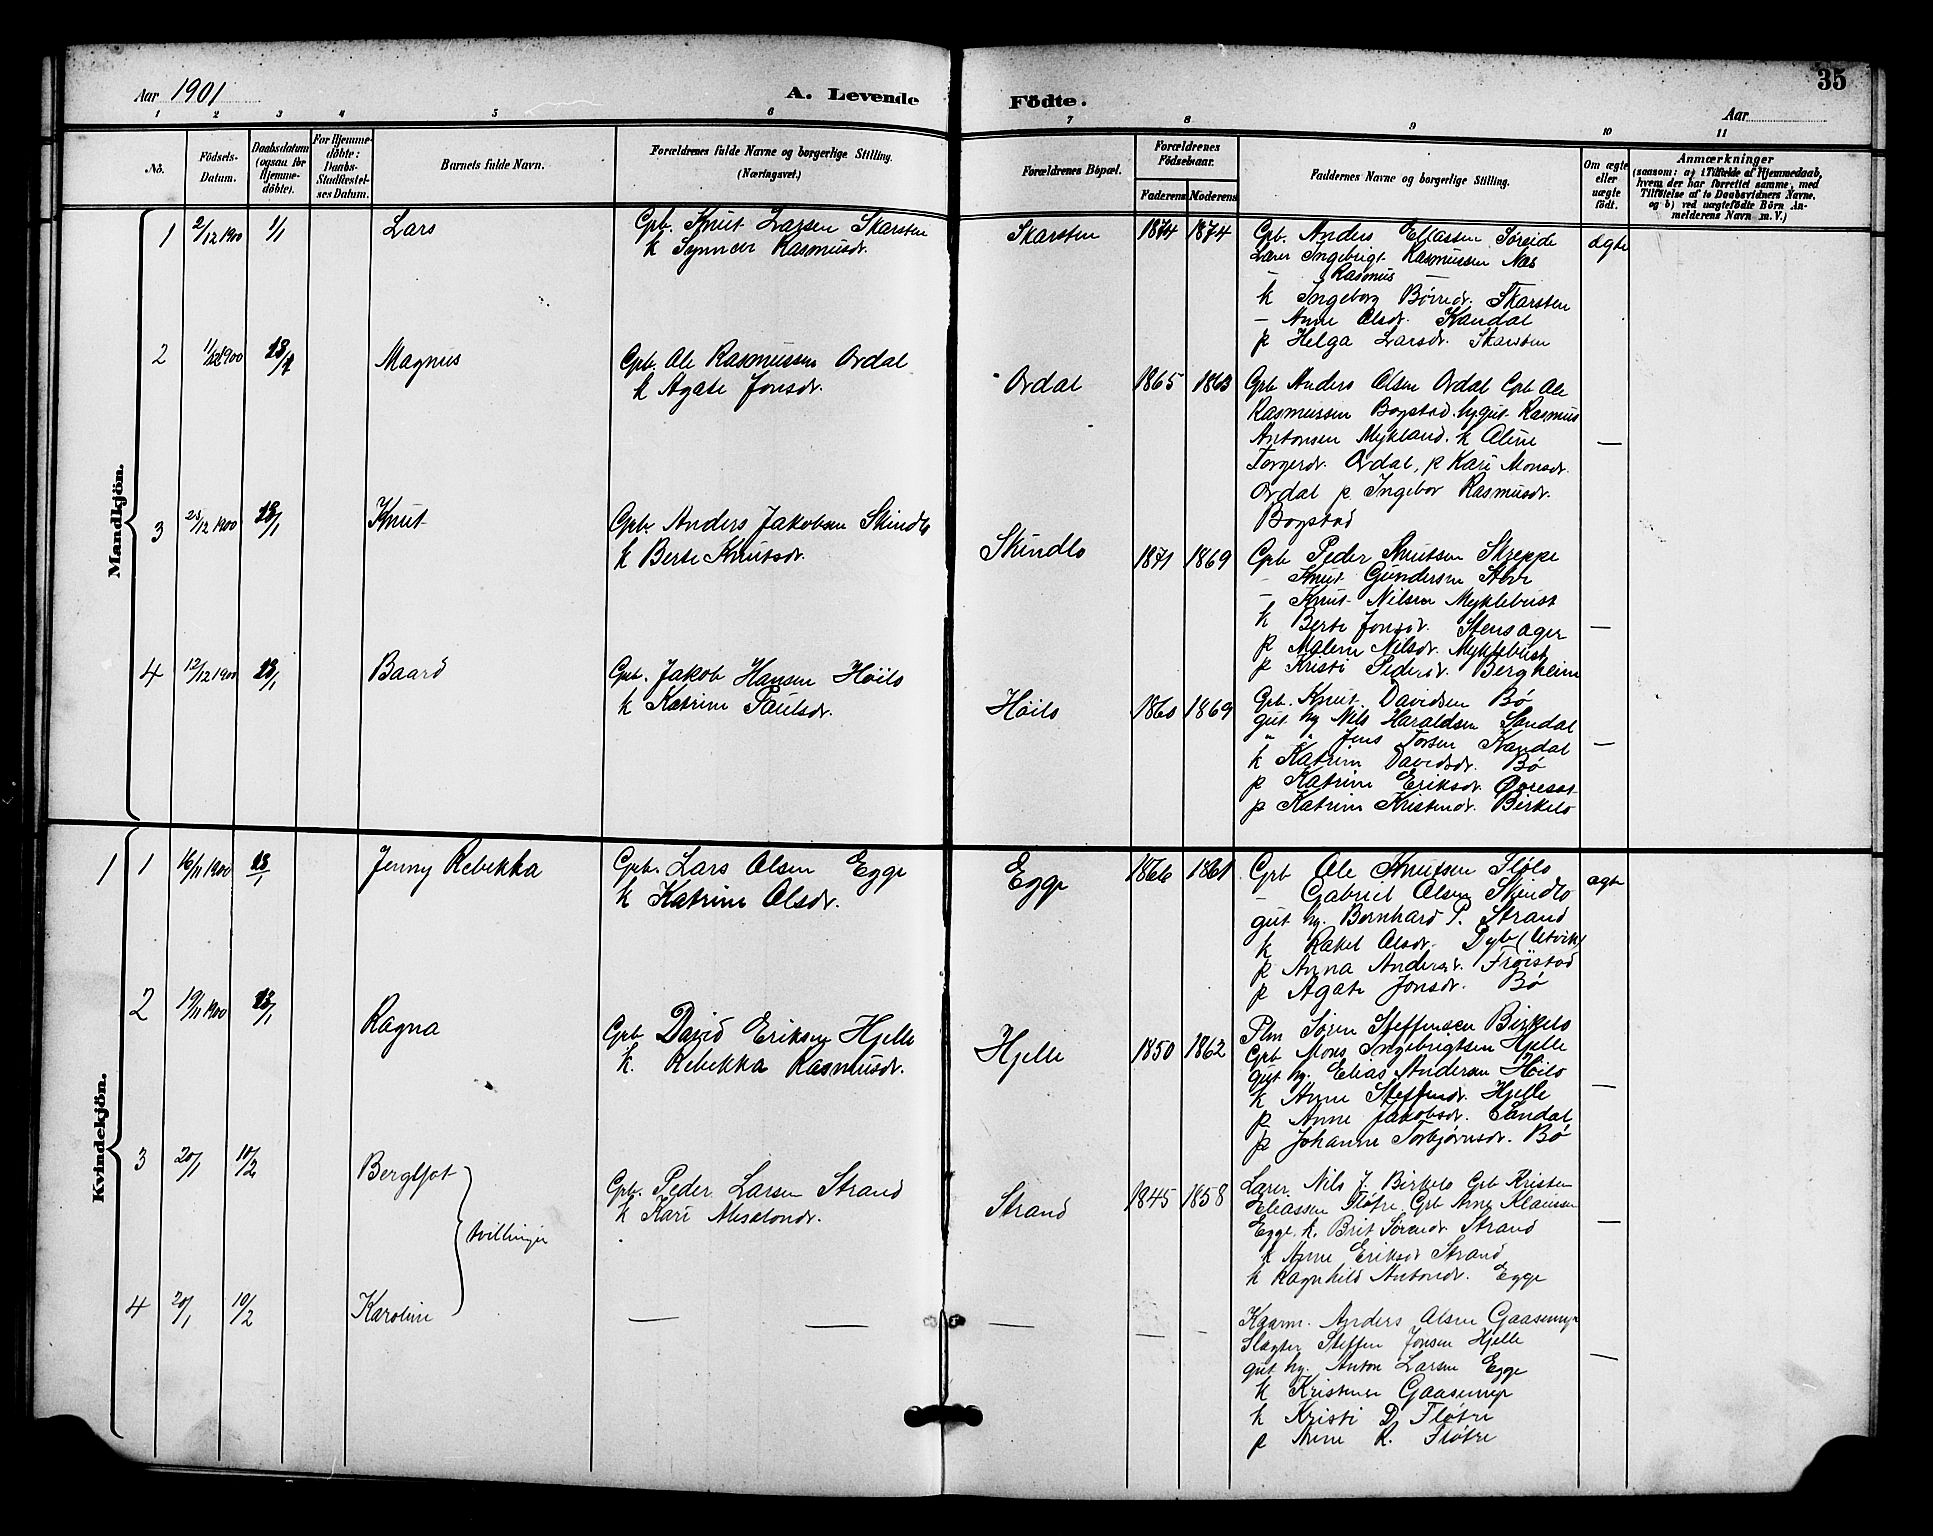 Aar 1901
A. Levende
Födte.
Aar
35
1 2 3 4 5 6 7 8 9 10 11
No.
Födsels-Datum.
Daabsdatum (ogsaa for Hjemme-döbte).
For Hjemme-döbte: Daabs-Stadfæstel-ses Datum.
Barnets fulde Navn.
Forældrenes fulde Navne og borgerlige Stilling. (Næringsvei.)
Forældrenes Bopæl.
Forældrenes Födselsaar.
Faderens
Moderens
Faddernes Navne og borgerlige Stilling.
Om ægte eller uægte födt.
Anmærkninger
(saasom: a) i Tilfælde af Hjemmedaab, hvem der har forrettet samme, med Tilföielse af to Daabsvidners Navne, og b) ved uægtefödte Börn An-melderens Navn m. V.)
Mandkjön.
1 2/12 1900 1/1 Lars
Gbr. Knut Larsen Skarsten
k Synner Rasmusdr.
Skarsten 1874 1874
Gbr. Anders Eliassen Søreide
Lærer Ingebrigt Rasmussen Næs
— Rasmus —
k Ingeborg Børredr. Skarsten
— Anne Olsdr. Kandal
p Helga Larsdr. Skarsten
ægte
2 11/12 1900 13/1 Magnus
Gbr. Ole Rasmussen Ordal
k Agate Jonsdr.
Ordal 1865 1863
Gbr Anders Olsen Ordal Gbr Ole
Rasmussen Bogstad. hy gut Rasmus
Antonsen Mykland. k Oline
Torgerdr. Ordal, p Kari Monsdr.
Ordal p Ingebor Rasmusdr.
Bogstad
—
3 25/12 1900 13/1 Knut
Gbr. Anders Jakobsen Skindlo
k Berte Knutsdr.
Skindlo 1871 1869
Gbr Peder Knutsen Skreppe
— Knut Gundersen
— Knut Nilsen Myklebust
k Berte Jonsdr. Stensager
p Malene Nilsdr. Myklebust
p Kristi Pedersdr. Bergheim
—
4 12/12 1900 13/1 Baard
Gbr. Jakob Hansen Höilo
k Katrine Paulsdr.
Höilo 1860 1869
Gbr. Knut Davidsen Bø
gut hy Nils Haraldsen Sandal
" " Jens Torsen Kandal
k Katrine Davidsdr. Bø
p Katrine Eriksdr.
p Katrine Kristendr. Birkelo
—
Kvindekjön.
1 1 16/11 1900 13/1 Jenny Rebekka
Gbr. Lars Olsen Egge
k Katrine Olsdr.
Egge 1866 1861
Gbr Ole Knutsen Fløtre
— Gabriel Olsen Skindlo
gut hy. Bernhard P. Strand
k Rakel Olsdr. Dyb (Utvik)
p Anna Andersdr. Fröistad
p Agate Jonsdr. Bø
ægte
2 19/11 1900 13/1 Ragna
Gbr David Eriksen Hjelle
k. Rebekka Rasmusdr.
Hjelle 1850 1862
Plm Søren Steffensen Birkelo
Gbr Mons Ingebrigtsen Hjelle
gut hy. Elias Andersen Höilo
k Anne Steffendr. Hjelle
p. Anne Jakobsdr. Sandal
p Johanne Torbjørnsdr. Bø
—
3 20/1 10/2 Bergljot
tvillinger
Gbr. Peder Larsen Strand
k Kari Absalondr.
Strand 1845 1858
Lærer Nils J. Birkelo Gbr Kristen
Eliassen Fløtre Gbr Arne Klausen
Egge. k. Brit Sørendr Strand
k Anne Eriksdr Strand
k Ragnhild Antondr. Egge
—
4 20/1 10/2 Karoline
— — — — —
Kaarm. Anders Olsen Gaasemyr
Slagter Steffen Jonsen Hjelle
gut hy. Anton Larsen Egge
k Kristense Gaasemyr
k Kristi D. Fløtre
p Anne R. Fløtre
—